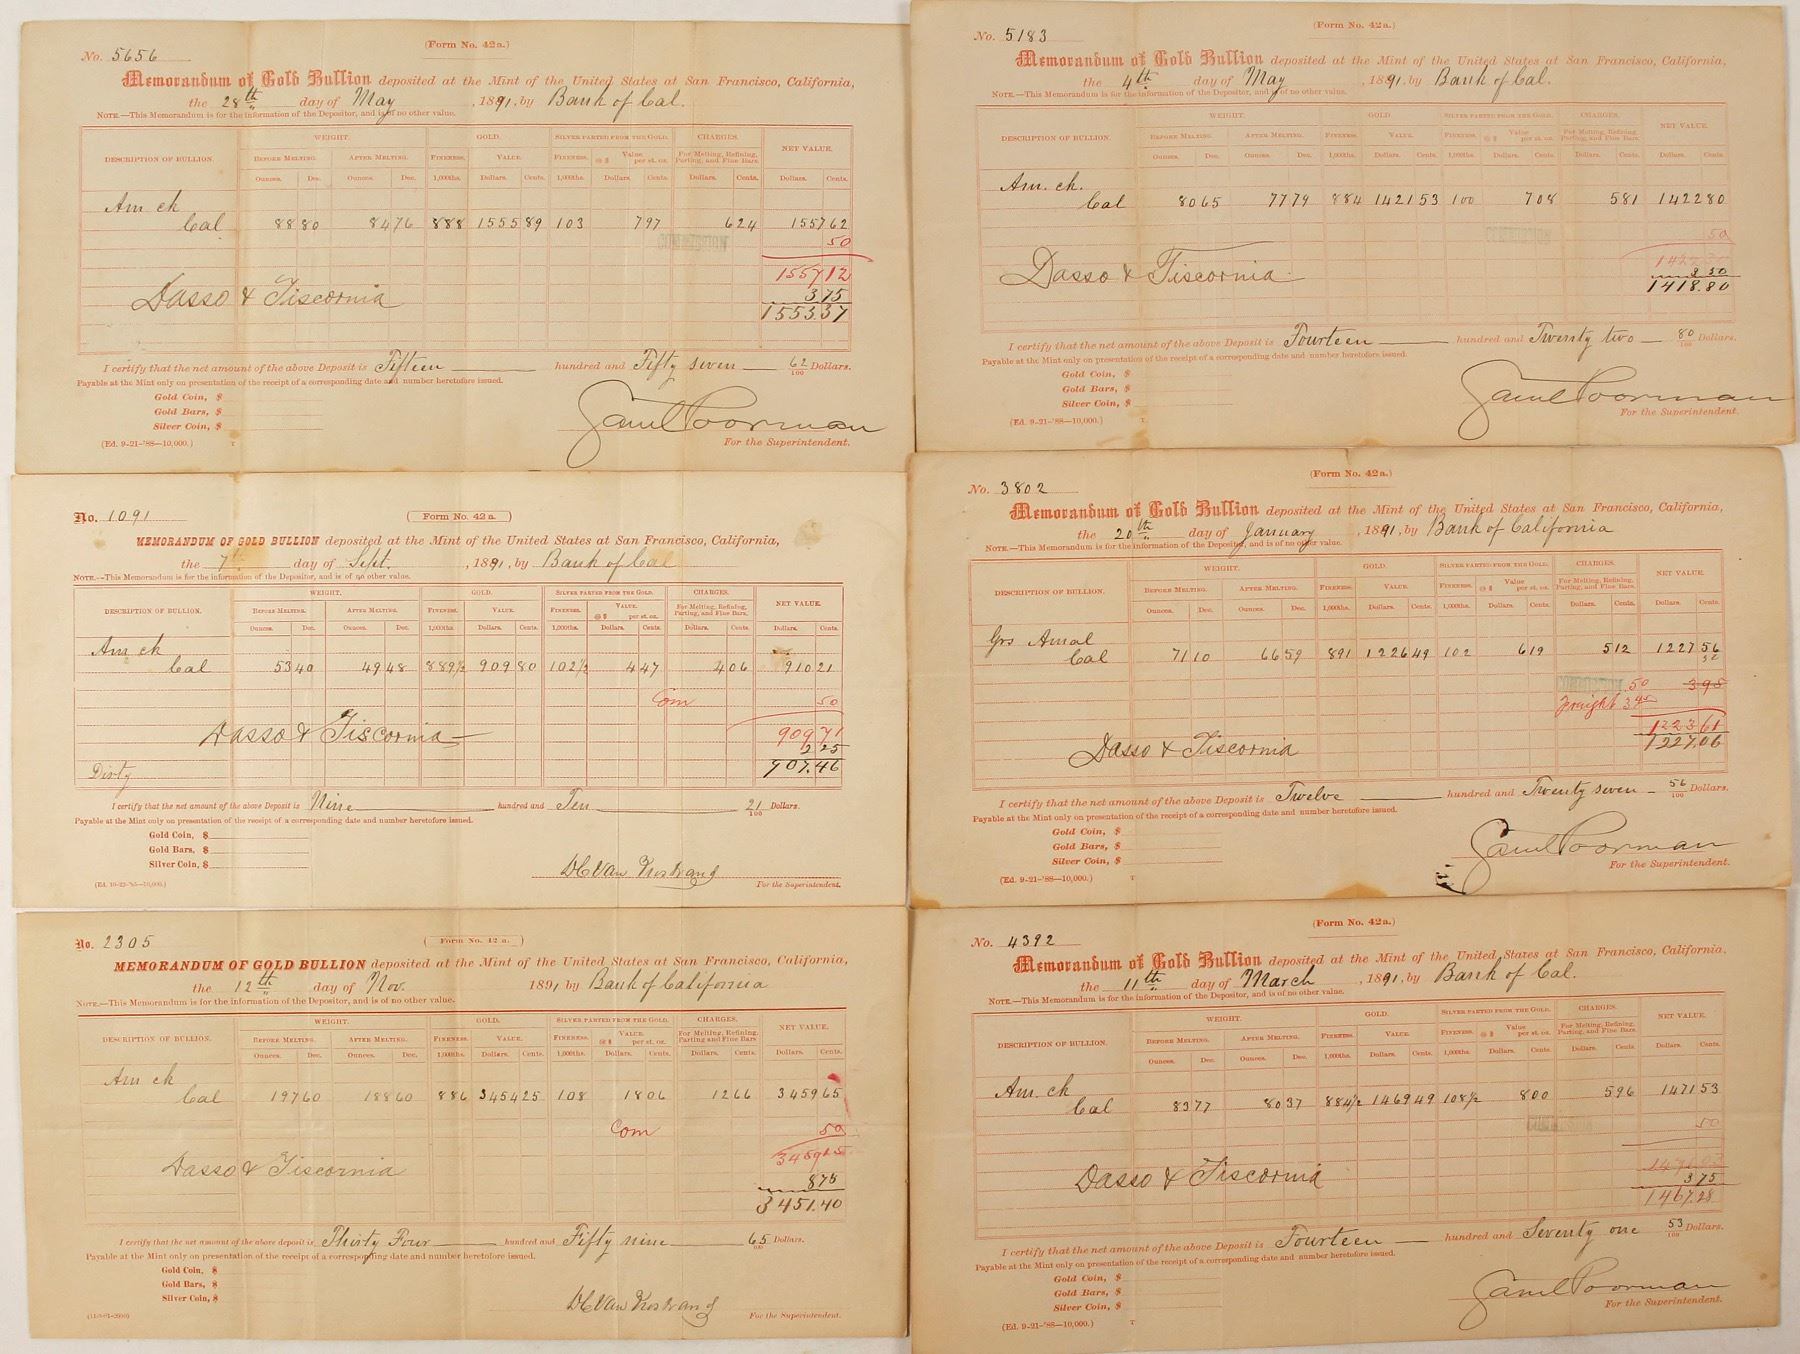 No. 5656
(Form No. 42a.)
Memorandum of Gold Bullion deposited at the Mint of the United States at San Francisco, California,
the 28th day of May, 1891, by Bank of Cal.
NOTE.—This Memorandum is for the information of the Depositor, and is of no other value.
WEIGHT. GOLD. SILVER PARTED FROM THE GOLD. CHARGES.
DESCRIPTION OF BULLION. BEFORE MELTING. AFTER MELTING. FINENESS. VALUE. FINENESS. @ $ Value per st. oz. For Melting, Refining, Parting, and Fine Bars. NET VALUE.
Ounces. Dec. Ounces. Dec. 1,000ths. Dollars. Cents. 1,000ths. Dollars. Cents. Dollars. Cents. Dollars. Cents.
Am ch
Cal 88 80 84 76 888 1555 89 103 7 97 6 24 1557 62
50
1557 12
Dasso & Tiscornia 3 75
1553.37
I certify that the net amount of the above Deposit is Fifteen hundred and Fifty seven 62/100 Dollars.
Payable at the Mint only on presentation of the receipt of a corresponding date and number heretofore issued.
Gold Coin, $
Gold Bars, $
Silver Coin, $
Saml Poorman
(Ed. 9-21-'88—10,000.) T For the Superintendent.
No. 5183
(Form No. 42a.)
Memorandum of Gold Bullion deposited at the Mint of the United States at San Francisco, California,
the 4th day of May, 1891, by Bank of Cal.
NOTE.—This Memorandum is for the information of the Depositor, and is of no other value.
WEIGHT. GOLD. SILVER PARTED FROM THE GOLD. CHARGES.
DESCRIPTION OF BULLION. BEFORE MELTING. AFTER MELTING. FINENESS. VALUE. FINENESS. @ $ Value per st. oz. For Melting, Refining, Parting, and Fine Bars. NET VALUE.
Ounces. Dec. Ounces. Dec. 1,000ths. Dollars. Cents. 1,000ths. Dollars. Cents. Dollars. Cents. Dollars. Cents.
Am. ch.
Cal 80 65 77 79 884 1421 53 100 7 08 5 81 1422 80
50
1422 30
Dasso & Tiscornia 3 50
1418.80
I certify that the net amount of the above Deposit is Fourteen hundred and Twenty two 80/100 Dollars.
Payable at the Mint only on presentation of the receipt of a corresponding date and number heretofore issued.
Gold Coin, $
Gold Bars, $
Silver Coin, $
Saml Poorman
For the Superintendent.
(Ed. 9-21-'88—10,000.) T.
No. 1091
(Form No. 42a.)
MEMORANDUM OF GOLD BULLION deposited at the Mint of the United States at San Francisco, California,
the 7th day of Sept., 1891, by Bank of Cal
NOTE.—This Memorandum is for the information of the Depositor, and is of no other value.
WEIGHT. GOLD. SILVER PARTED FROM THE GOLD. CHARGES.
DESCRIPTION OF BULLION. BEFORE MELTING. AFTER MELTING. FINENESS. VALUE. FINENESS. @ $ VALUE. per st. oz. For Melting, Refining, Parting, and Fine Bars. NET VALUE.
Ounces. Dec. Ounces. Dec. 1,000ths. Dollars. Cents. 1,000ths. Dollars. Cents. Dollars. Cents. Dollars. Cents.
Am ch
Cal 53 40 49 48 889½ 909 80 102½ 4 47 4 06 910 21
Com 50
Dasso & Tiscornia 909 71
2 25
Dirty 907.46
I certify that the net amount of the above Deposit is Nine hundred and Ten 21/100 Dollars.
Payable at the Mint only on presentation of the receipt of a corresponding date and number heretofore issued.
Gold Coin, $
Gold Bars, $
Silver Coin, $
(Ed. 10-23-'85—10,000.) For the Superintendent.
No. 3802
(Form No. 42a.)
Memorandum of Gold Bullion deposited at the Mint of the United States at San Francisco, California,
the 20th day of January, 1891, by Bank of California
NOTE.—This Memorandum is for the information of the Depositor, and is of no other value.
WEIGHT. GOLD. SILVER PARTED FROM THE GOLD. CHARGES.
DESCRIPTION OF BULLION. BEFORE MELTING. AFTER MELTING. FINENESS. VALUE. FINENESS. @ $ Value per st. oz. For Melting, Refining, Parting, and Fine Bars. NET VALUE.
Ounces. Dec. Ounces. Dec. 1,000ths. Dollars. Cents. 1,000ths. Dollars. Cents. Dollars. Cents. Dollars. Cents.
Grs Amal
Cal 71 10 66 59 891 1226 49 102 6 19 5 12 1227 56
50 3 95
Freight 3 45
1223 61
Dasso & Tiscornia 1227.06
I certify that the net amount of the above Deposit is Twelve hundred and Twenty seven 56/100 Dollars.
Payable at the Mint only on presentation of the receipt of a corresponding date and number heretofore issued.
Gold Coin, $
Gold Bars, $
Silver Coin, $
Saml Poorman
For the Superintendent.
(Ed. 9-21-'88—10,000.) T
No. 2305
(Form No. 42a.)
MEMORANDUM OF GOLD BULLION deposited at the Mint of the United States at San Francisco, California,
the 12th day of Nov. 1891 by Bank of California
NOTE.—This Memorandum is for the information of the Depositor, and is of no other value.
WEIGHT. GOLD. SILVER PARTED FROM THE GOLD. CHARGES.
DESCRIPTION OF BULLION. BEFORE MELTING. AFTER MELTING. FINENESS. VALUE. FINENESS. @ $ VALUE. per st. oz. For Melting, Refining, Parting and Fine Bars NET VALUE.
Ounces. Dec. Ounces. Dec. 1,000ths Dollars. Cents. 1,000ths. Dollars. Cents. Dollars. Cents. Dollars. Cents.
Am ch
Cal 197 60 188 60 886 3454 25 108 18 06 12 66 3459 65
Com 50
3459 15
Dasso & Tiscornia 8 75
3451.40
I certify that the net amount of the above deposit is Thirty Four hundred and Fifty nine 65/100 Dollars.
Payable at the Mint only on presentation of the receipt of a corresponding date and number heretofore issued.
Gold Coin, $
Gold Bars, $
Silver Coin, $
For the Superintendent.
No. 4392
(Form No. 42a.)
Memorandum of Gold Bullion deposited at the Mint of the United States at San Francisco, California.
the 11th day of March, 1891, by Bank of Cal.
NOTE.—This Memorandum is for the information of the Depositor, and is of no other value.
WEIGHT. GOLD. SILVER PARTED FROM THE GOLD. CHARGES.
DESCRIPTION OF BULLION. BEFORE MELTING. AFTER MELTING. FINENESS. VALUE. FINENESS. @ $ Value per st. oz. For Melting, Refining, Parting, and Fine Bars. NET VALUE.
Ounces. Dec. Ounces. Dec. 1,000ths. Dollars. Cents. 1,000ths. Dollars. Cents. Dollars. Cents. Dollars. Cents.
Am. ch
Cal 83 77 80 37 884½ 1469 49 108½ 8 00 5 96 1471 53
50
Dasso & Tiscornia 3 75
1467.28
I certify that the net amount of the above Deposit is Fourteen hundred and Seventy one 53/100 Dollars.
Payable at the Mint only on presentation of the receipt of a corresponding date and number heretofore issued.
Gold Coin, $
Gold Bars, $
Silver Coin, $
Saml Poorman
For the Superintendent.
(Ed. 9-21-'88—10,000.) T